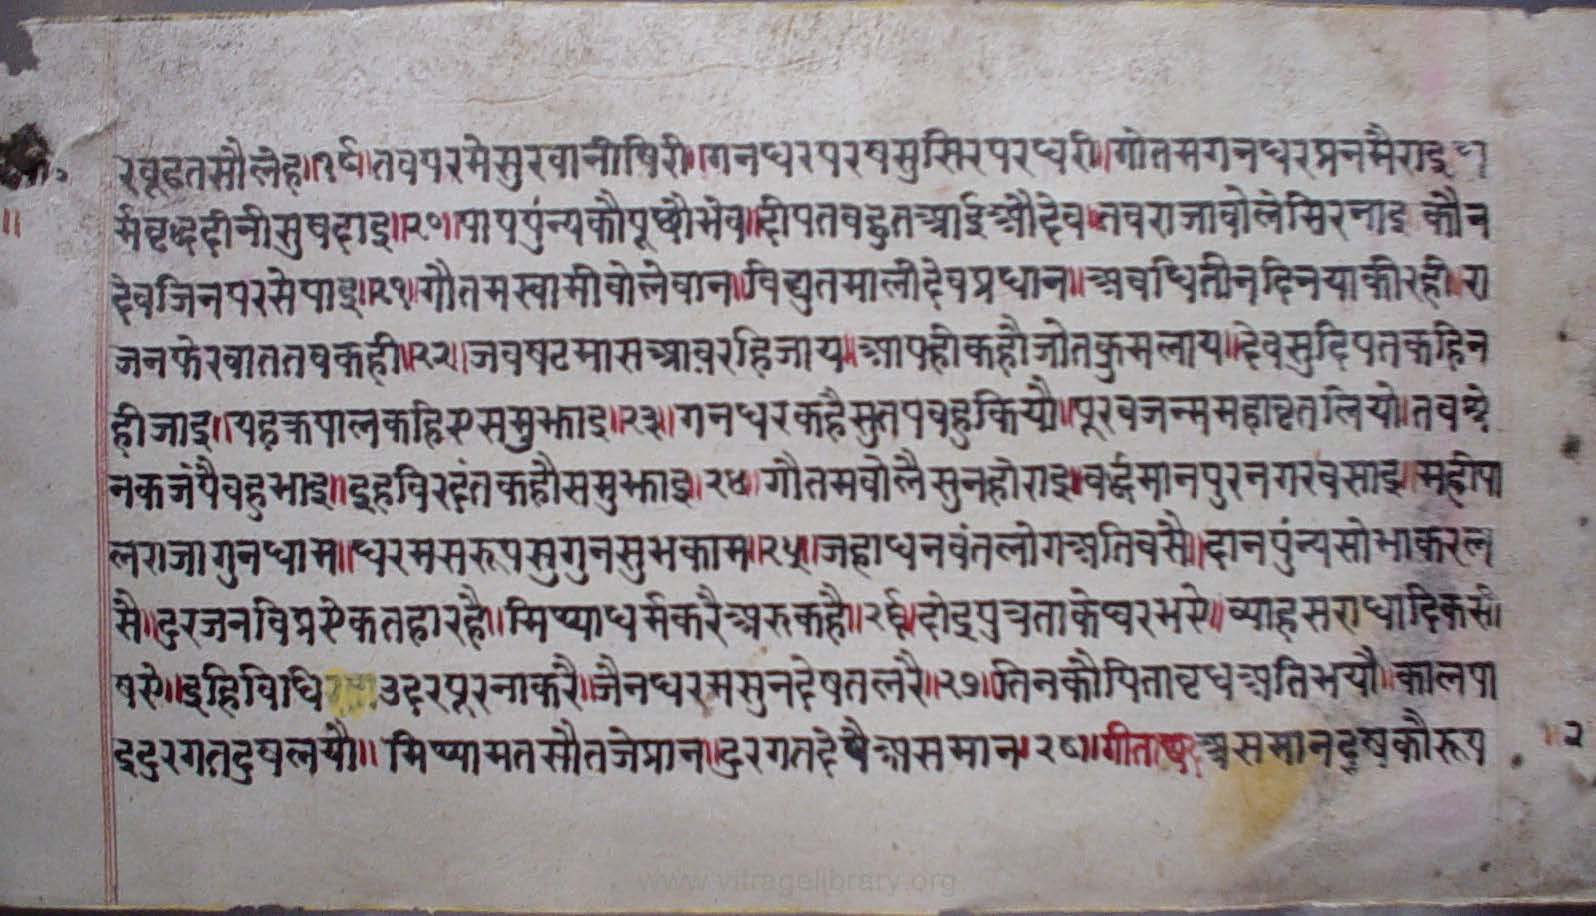 रवूढतसौलेह॥१९॥तवपरमेसुरवानीषिरी॥गनधरपरषमुसिरपरधरी॥गोतमगनधरप्रनमैराइ ध
र्मवृद्धदीनीसुषदाइ॥२०॥पापपुंन्यकौपूछौभेव॥दीपतवहुतआईऔदेव॥तवराजावोलेसिरनाइ कौन
देवजिनपरसेपाइ॥२१॥गौतमस्वामीवोलेवान॥विद्युतमालीदेवप्रधान॥अवधितीनदिनयाकीरही॥रा
जनफेरवाततवकही॥२२॥जवषटमासआवरहिजाय॥आपहीकहौजोतकुमलाय॥देवसुदिपतकहिन
हीजाइ॥यहक्रपालकहिएसमुझाइ॥२३॥गनधरकहैसुतपवहुकियौ॥पूरवजन्ममहावृतलियो॥तवश्रे
नकजंपैवहुभाइ॥इहविरदंतकहौसमुझाइ॥२४॥गौतमवोलैसुनहोराइ॥वर्द्धमानपुरनगरवसाइ॥महीपा
लराजागुनधाम॥धरमसरूपसुगुनसुभकाम॥२५॥जहाधनवंतलोगअतिवसै॥दानपुंन्यसोभाकरल
सै॥दुरजनविप्रएकतहारहै॥मिथ्याधर्मकरैअरुकहै॥२६॥दोइपुत्रताकेघरभए॥व्याहसराधादिकसं
षए॥इहिविधि उदरपूरनाकरै॥जैनधरमसुनदेषतलरै॥२७॥तिनकौपितावृधअतिभयौ॥कालपा
इदुरगतदुषलयौ॥मिथ्यामतसौतजेप्रान॥दुरगतदेषैअसमान॥२८॥गीताछंद॥असमानदुषकौरूप
॥२